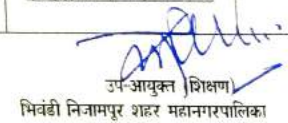 उप-आयुक्त (शिक्षण)
भिवंडी निजामपूर शहर महानगरपालिका